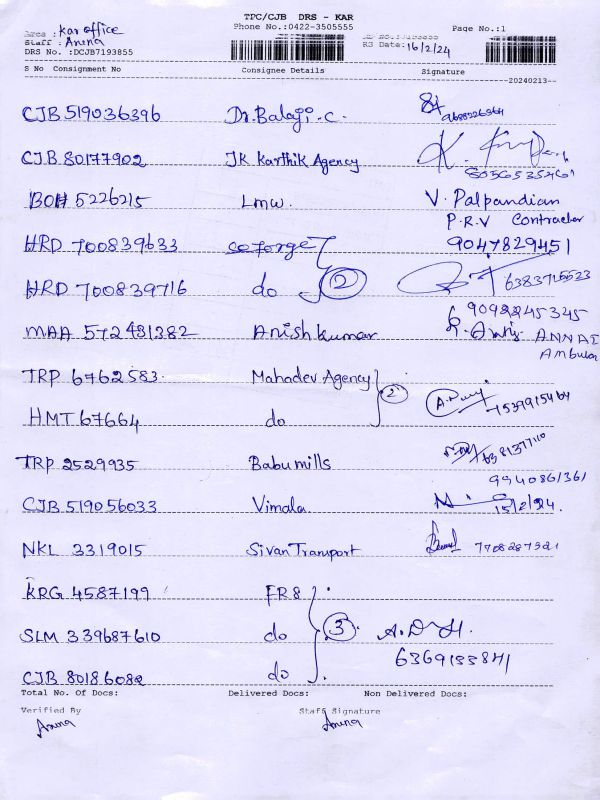 TPC/CJB DRS - KAR
Phone No.:0422-3505555 Page No.:1
Area : Kar office
Staff : Amina RS Date: 16/2/24
DRS No. :DCJB7193855
S No Consignment No Consignee Details Signature
--20240213--
CJB 519036396 Dr. Balaji. C.
CJB 80177902 JK Karthik Agency K.
BOH 5226215 Lmw. V. Palpandian
P.R.V Contractor
HRD 700839633 coforge 9047829451
HRD 700839716 do 2 6383715523
9092245345
MAA 572481382 Anish kumar ANNAI
Ambula
TRP 6762583 Mahadev Agency 2
HMT 67664 do 7539915464
TRP 2529935 Babu mills
9940861361
CJB 519056033 Vimala 15/2/24.
NKL 3319015 Sivan Transport 7708287321
KRG 4587199 FR8
SLM 339687610 do 3 A.D
6369133841
CJB 80186082 do
Total No. Of Docs: Delivered Docs: Non Delivered Docs:
Verified By Staff Signature
Amina Amina